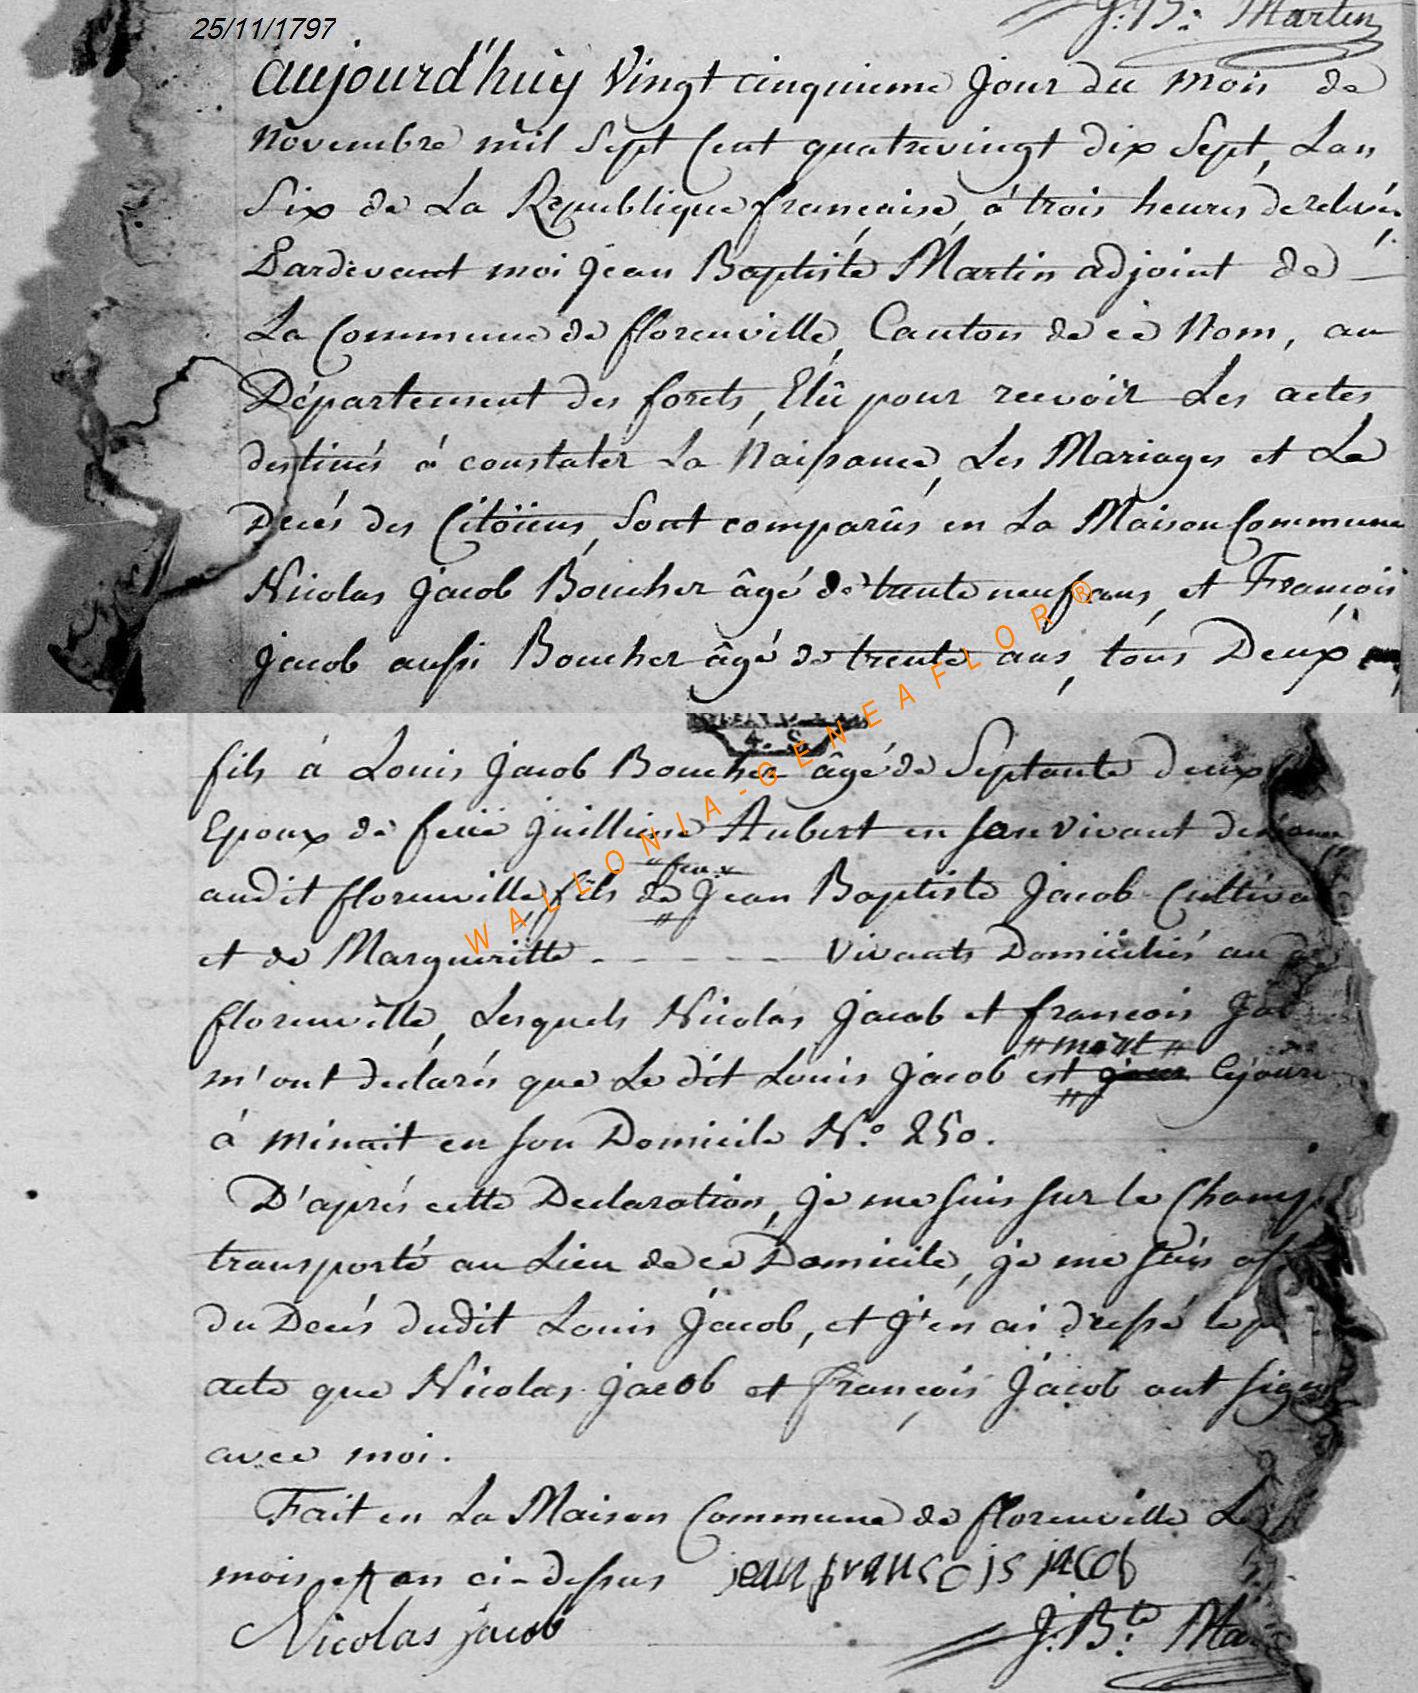 J. B.te Martin
25/11/1797
aujourd'huy Vingt cinquieme Jour du mois de
Novembre mil Sept Cent quatrevingt dix Sept, Lan
Six de La Republique française, á trois heures de relévée,
Pardevant moi Jean Baptiste Martin adjoint de
La Commune de florenville, Canton de ce Nom, au
Département des forets, Elû pour recevoir Les actes
destinés á constater La Naissance, Les Mariages et Le
Decés des Citoïiens, Sont comparûs en La Maison Commune
Nicolas Jacob Boucher âgé de trente neuf ans, et François
Jacob aussi Boucher âgé de trente ans, tous Deux
fils á Louis Jacob Boucher âgé de Septante deux
Epoux de feüe Juillienne Aubert en son vivant
audit florenville, fils de "feu" Jean Baptiste Jacob
et de Margueritte - - - - - Vivants Domiciliés au
florenville, Lesquels Nicolas Jacob et françois
"mort"
m'ont declarés que Le dit Louis Jacob est Cejourd
á minuit en son Domicile N.o 250.
D'aprés cette Declaration, Je me suis sur le Champ
transporté au Lieu de ce Domicile, je me suis
du Decés dudit Louis Jacob, et j'en ai dressé le
acte que Nicolas Jacob et françois Jacob ont signé
avec moi.
Fait en La Maison Commune de florenville Le
mois et an ci-dessus jean francois jacob
Nicolas jacob
J. B.te Ma
WALLONIA-GENEAFLOR®